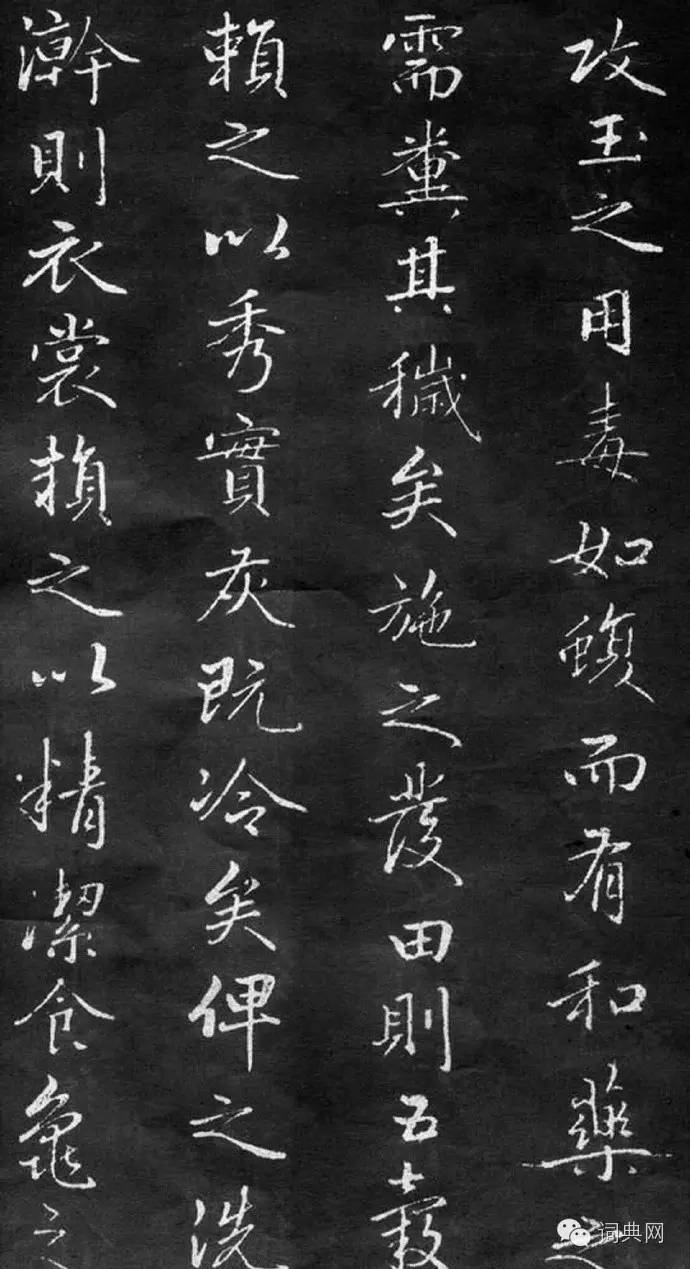 攻玉之用毒如蝮而有和藥之
需糞其穢矣施之發田則五穀
賴之以秀實灰既冷矣俾之洗
澣則衣裳賴之以精潔食龜之
词典网